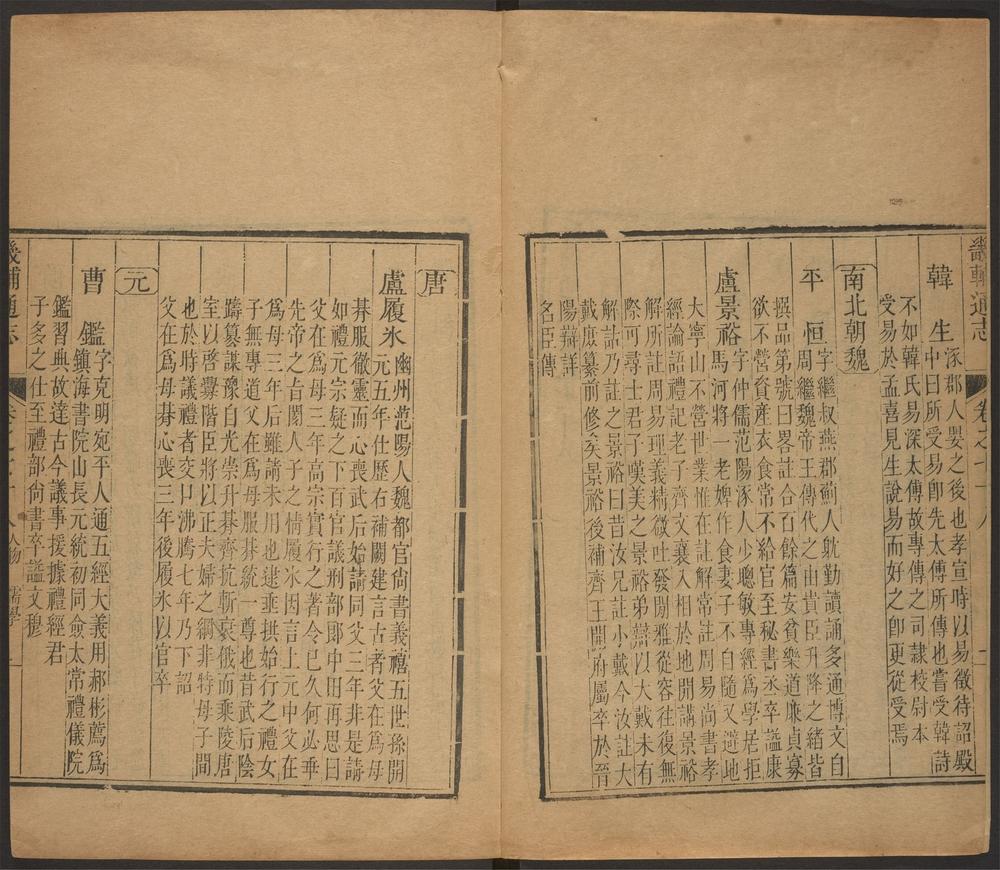 畿輔通志
卷之
韓 生
涿郡人嬰之後也孝宣時以易徵待詔殿
中曰所受易卽先太傅所傳也嘗受韓詩
不如韓氏易深太傅故專傳之司隷校尉本
受易於孟喜見生說易而好之卽更從受焉
南北朝魏
平 恒
字繼叔燕郡薊人躭勤讀誦多通博文自
周繼魏帝王傳代之由貴臣升降之緒皆
撰品第號曰畧註合百餘篇安貧樂道廉貞寡
欲不營資產衣食常不給官至秘書丞卒諡康
盧景裕
字仲儒范陽涿人少聰敏專經為學居拒
馬河將一老婢作食妻子不自隨又避地
大寧山不營世業惟在註解常註周易尚書孝
經論語禮記老子齊文襄入相於地開講景裕
解所註周易理義精微吐發閒雅從容往復無
際可尋士君子嘆美之景裕弟辯以大戴未有
解詁乃註之景裕曰昔汝兄註小戴今汝註大
戴庶纂前修矣景裕後補齊王開府屬卒於晉
陽辯詳
名臣傳
唐
盧履氷
幽州范陽人魏都官尚書義僖五世孫開
元五年仕歷右補闕建言古者父在為母
朞服徹靈而心喪武后始請同父三年非是請
如禮元宗疑之下百官議刑部郎中田再思曰
父在為母三年高宗實行之著令已久何必乖
先帝之旨閡人子之情履氷因言上元中父在
為母三年后雖請未用也逮垂拱始行之禮女
子無專道父在為母服朞統一尊也昔武后陰
蹐篡謀豫自光崇升朞齊抗斬衰俄而乘陵唐
室以啓釁階臣將以正夫婦之綱非特母子間
也於時議禮者交口沸騰七年乃下詔
父在為母朞心喪三年後履氷以官卒
元
曹 鑑
字克明宛平人通五經大義用郝彬薦為
鎮海書院山長元統初同僉太常禮儀院
鑑習典故達古今議事援據禮經君
子多之仕至禮部尚書卒諡文穆
畿輔通志
人物 儒學